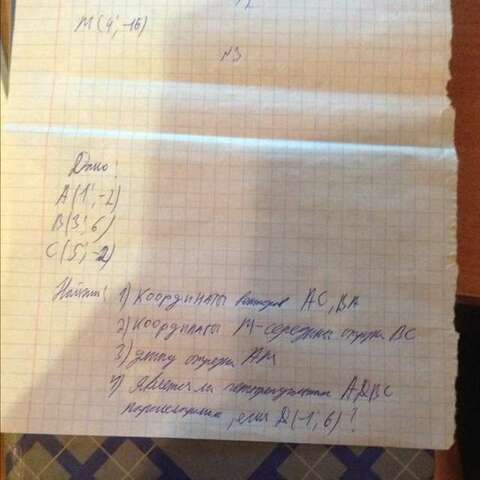 М(4; -16)
N3
Дано:
А(1; -2)
В(3; 6)
С(5; -2)
Найти: 1) Координаты векторов АС, ВА
2) Координаты М-середины отрезка ВС
3) длину отрезка АМ
4) Является ли четырёхугольник АDВС
параллелограмм, если D(-1; 6)?